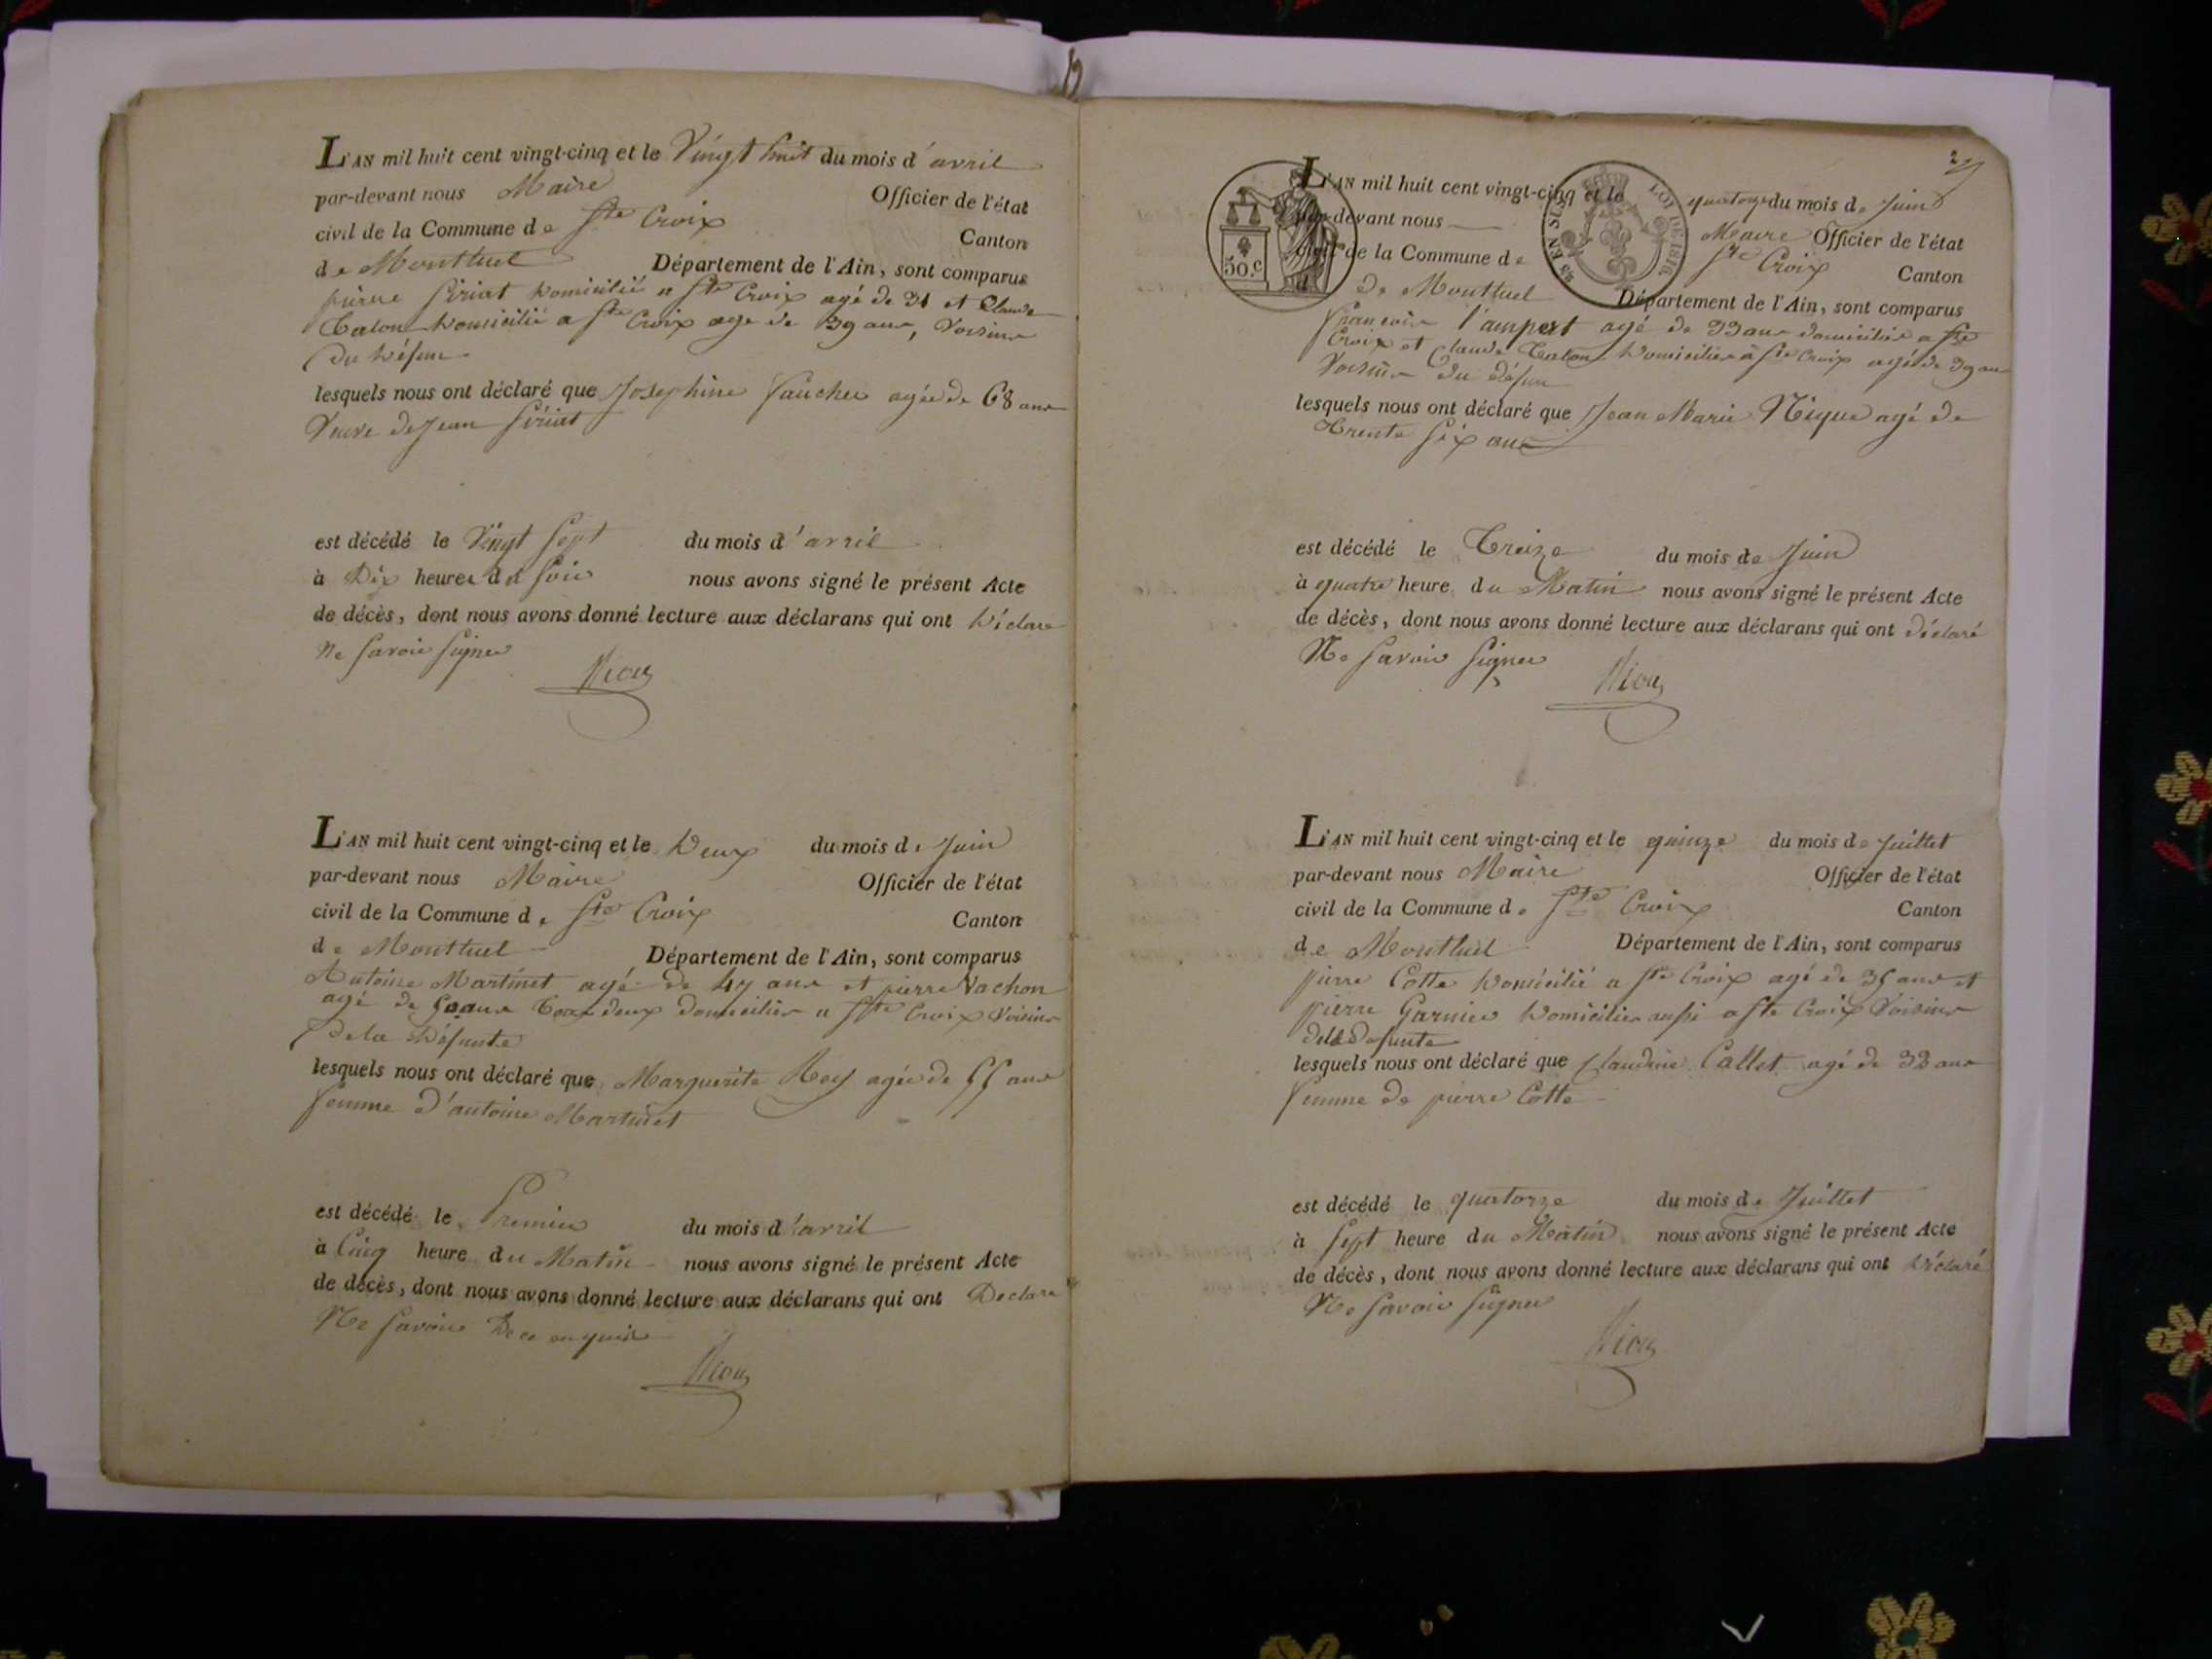 L'AN mil huit cent vingt-cinq et le Vingt huit du mois d'avril
par-devant nous Maire Officier de l'état
civil de la Commune de Ste Croix Canton
de Montluel Département de l'Ain, sont comparus
pierre Siriat Domicilié a Ste Croix agé de 31 et Claude
Domicilié a Ste Croix age de 39 ans, Voisins
du Défun
lesquels nous ont déclaré que Josephine agée de 68 ans
Veuve de Jean Siriat
est décédé le Vingt Sept du mois d'avril
à Dix heures du Soir nous avons signé le présent Acte
de décès, dont nous avons donné lecture aux déclarans qui ont Déclare
Ne Savoir Signer
L'AN mil huit cent vingt-cinq et le Deux du mois de Juin
par-devant nous Maire Officier de l'état
civil de la Commune de Ste Croix Canton
de Montluel Département de l'Ain, sont comparus
Antoine Martinet agé de 47 ans et pierre Vachon
agé de ans Tous deux domicilies a Ste Croix Voisins
de la Défunte
lesquels nous ont déclaré que Marguerite Rey agée de 55 ans
femme d'antoine Martinet
est décédé le Premier du mois d'avril
à Cinq heure du Matin nous avons signé le présent Acte
de décès, dont nous avons donné lecture aux déclarans qui ont Declare
Ne Savoir De ce enquis
2
L'AN mil huit cent vingt-cinq et le quatorze du mois de Juin
par-devant nous Maire Officier de l'état
civil de la Commune de Ste Croix Canton
de Montluel Département de l'Ain, sont comparus
50.c
LOI DE 1816
EN SUS
francois l'ampert agé de 33 ans domicilié a Ste
Croix et Claude Domicilier à Ste Croix agé de 39 ans
Voisins du défun
lesquels nous ont déclaré que Jean Marie Nique agé de
Trente Six ans
est décédé le Treize du mois de Juin
à quatre heure du Matin nous avons signé le présent Acte
de décès, dont nous avons donné lecture aux déclarans qui ont déclaré
Ne Savoir Signer
L'AN mil huit cent vingt-cinq et le quinze du mois de Juillet
par-devant nous Maire Officier de l'état
civil de la Commune de Ste Croix Canton
de Montluel Département de l'Ain, sont comparus
pierre Cotte Domicilié a Ste Croix agé de 35 ans et
pierre Garnier Domicilier aussi a Ste Croix Voisins
de la Defunte
lesquels nous ont déclaré que Claudine Callet agé de 32 ans
femme de pierre Cotte
est décédé le quatorze du mois de Juillet
à Sept heure du Matin nous avons signé le présent Acte
de décès, dont nous avons donné lecture aux déclarans qui ont Déclaré
Ne Savoir Signer